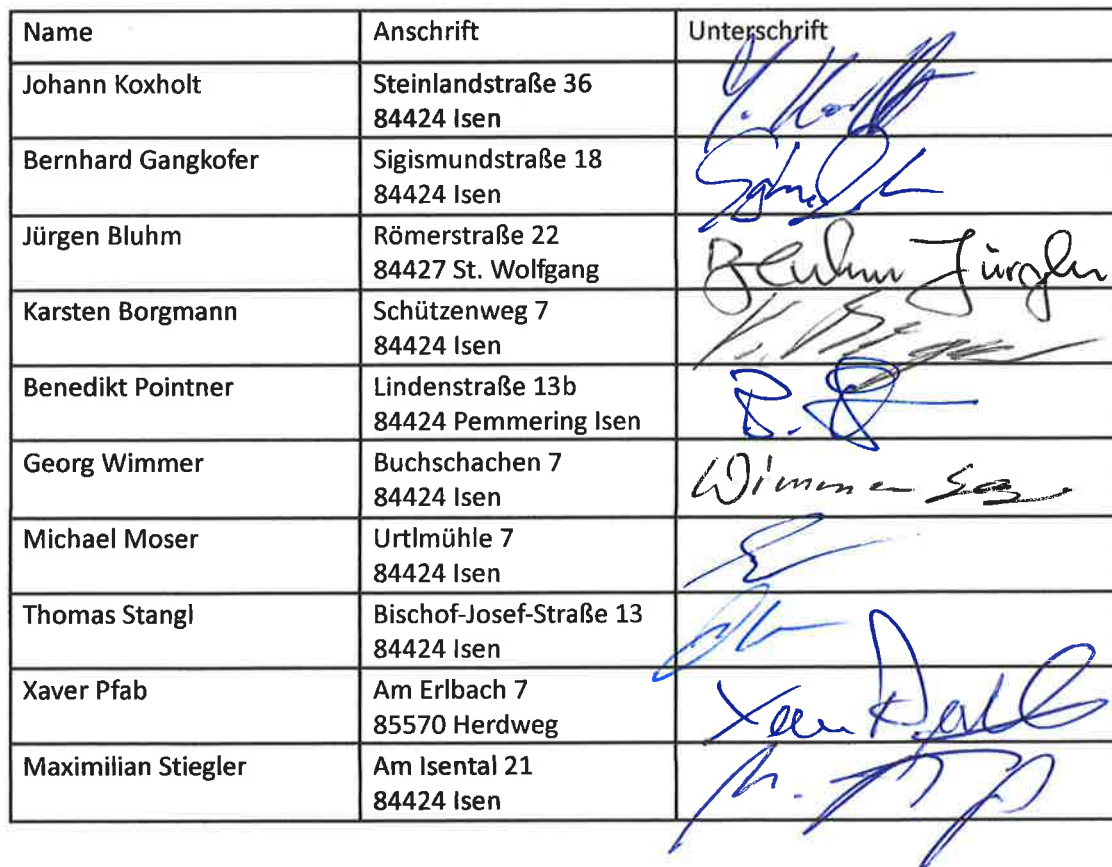 Name Anschrift Unterschrift
Johann Koxholt Steinlandstraße 36
84424 Isen
Bernhard Gangkofer Sigismundstraße 18
84424 Isen
Jürgen Bluhm Römerstraße 22
84427 St. Wolfgang Bluhm Jürgen
Karsten Borgmann Schützenweg 7
84424 Isen
Benedikt Pointner Lindenstraße 13b
84424 Pemmering Isen
Georg Wimmer Buchschachen 7
84424 Isen Wimmer
Michael Moser Urtlmühle 7
84424 Isen
Thomas Stangl Bischof-Josef-Straße 13
84424 Isen
Xaver Pfab Am Erlbach 7
85570 Herdweg
Maximilian Stiegler Am Isental 21
84424 Isen